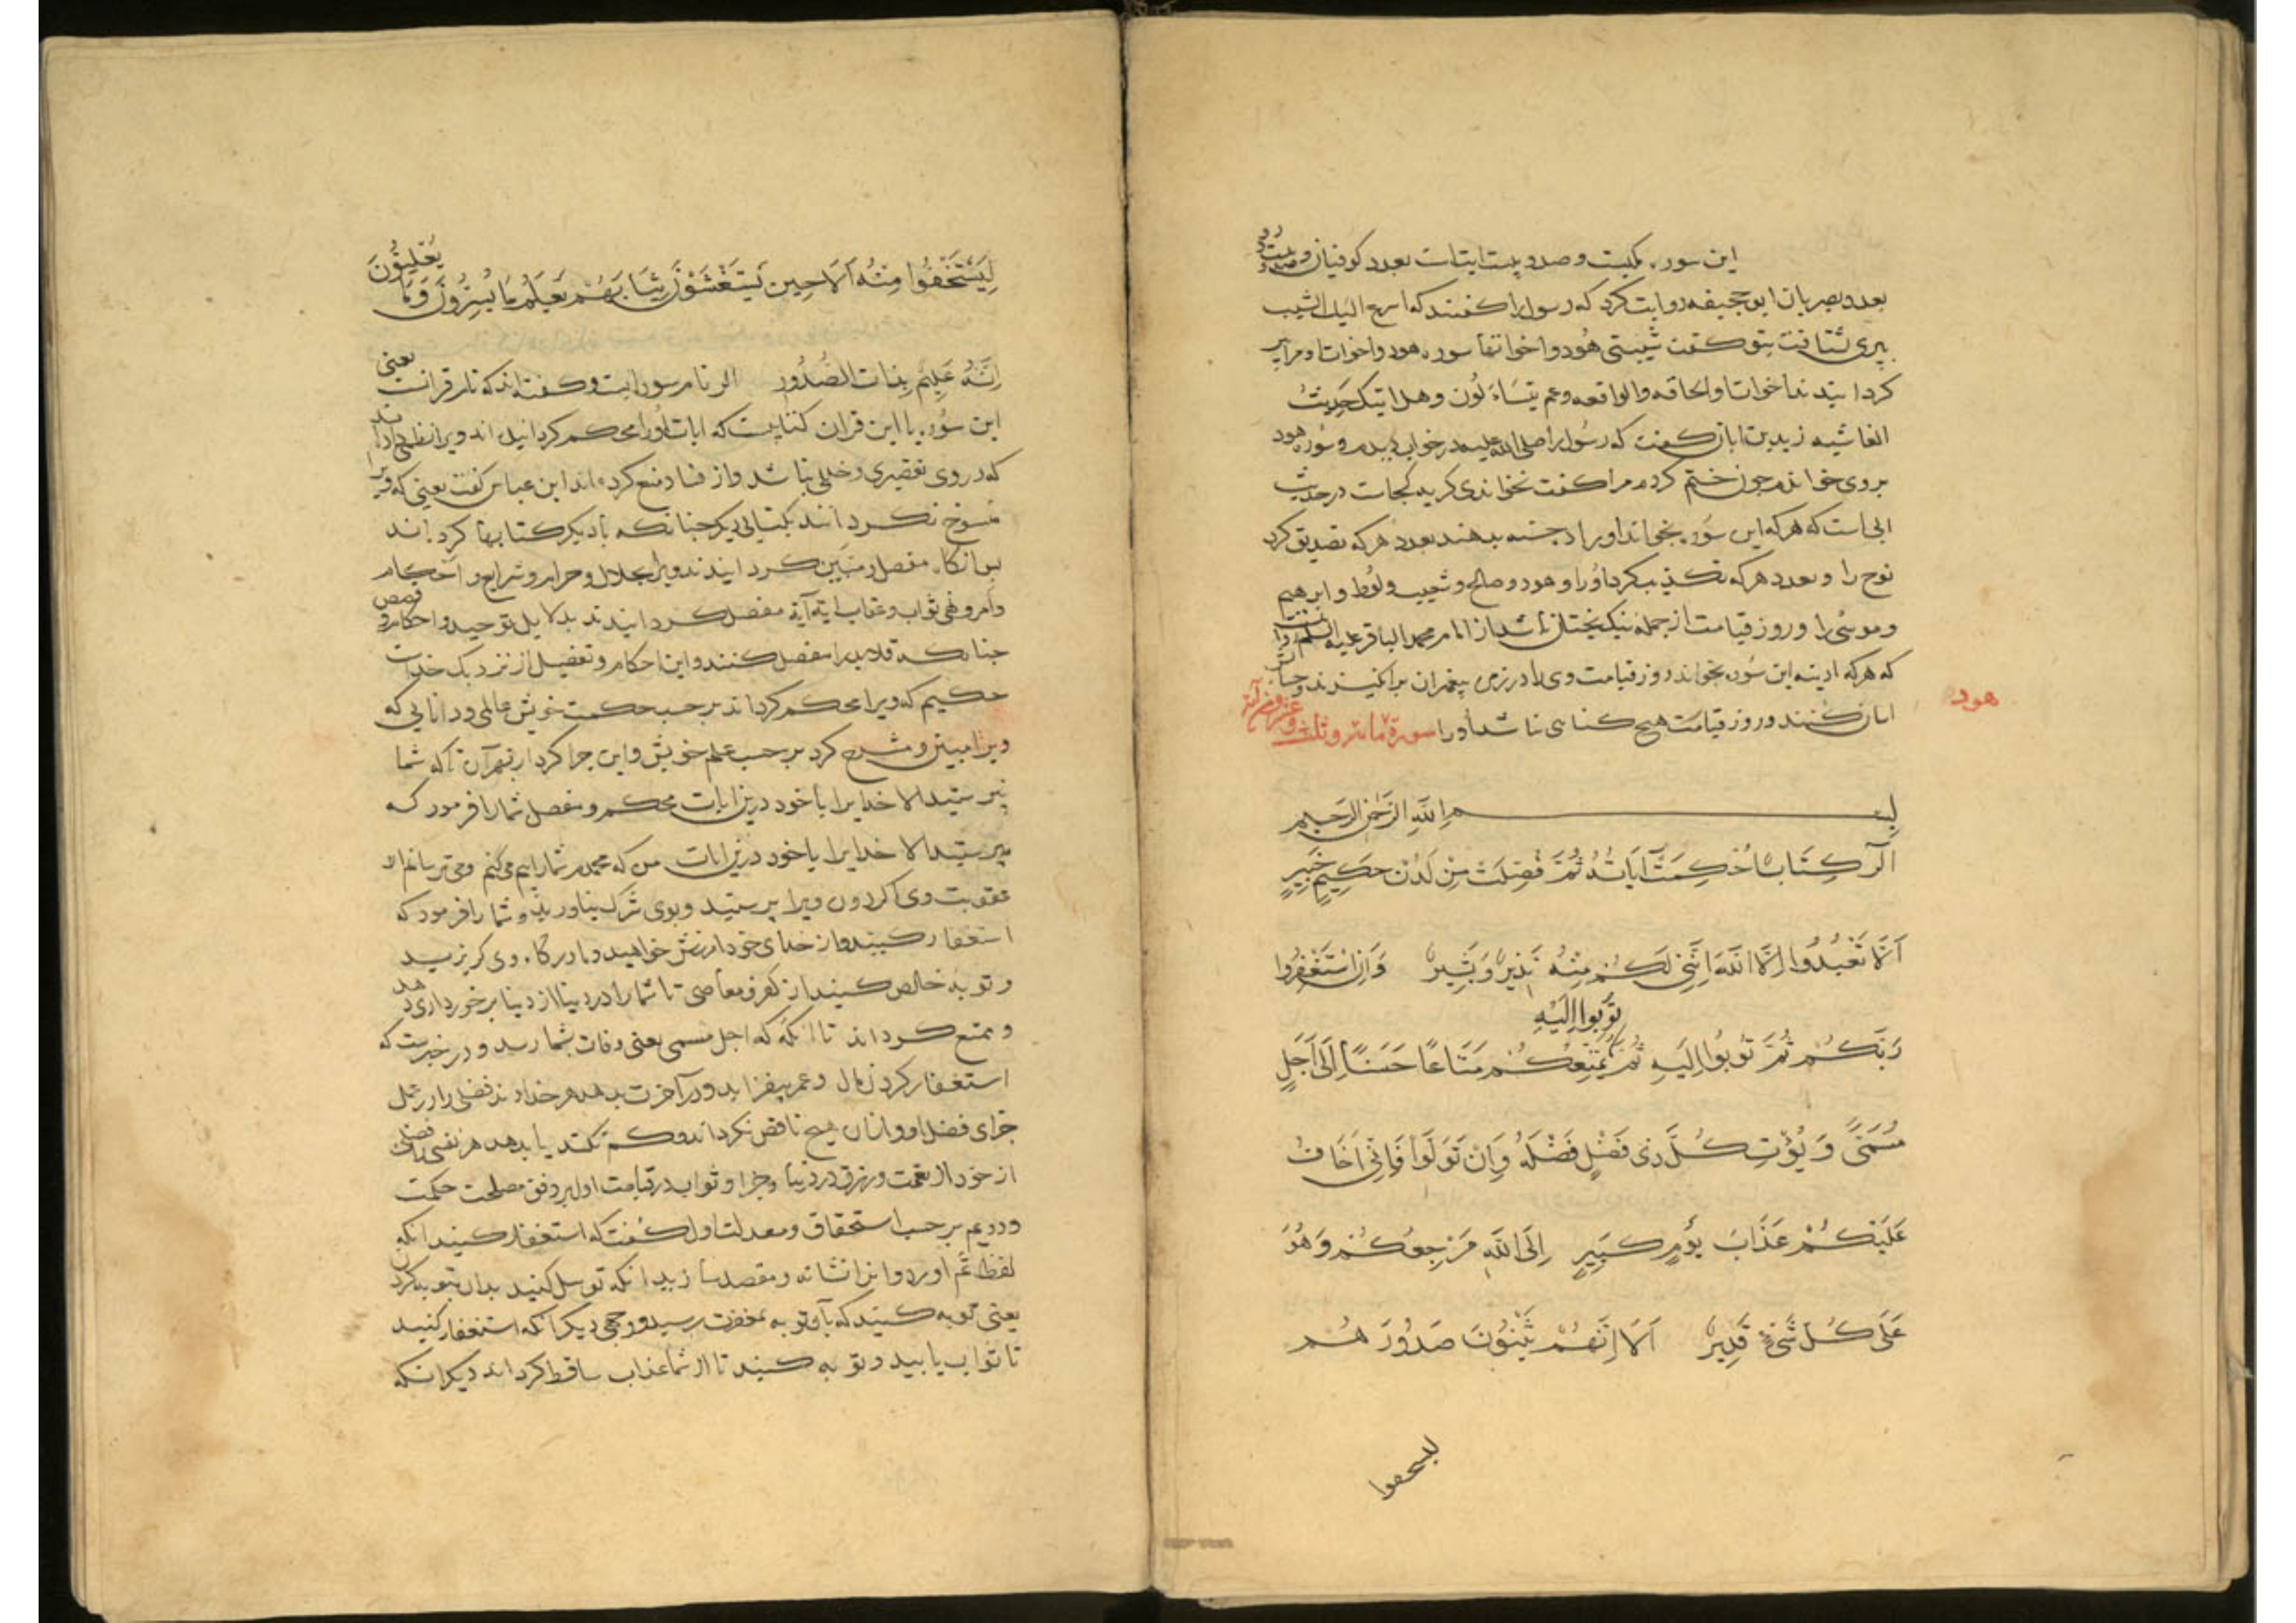 این سوره مکیست و صد و بیست ایتات بعدد کوفیان و صد و بیست و دو
بعدد بصریان ابو جحیفه روایت کرد که رسول را کفتند که اسرع الیک الشیب
پیری شتافت بتو کفت شیبتنی هود و اخواتها سوره هود و اخوات او مرا پیر
کردانیدند اخوات او الحاقه و الواقعه و عم یتساءلون و هل اتیک حدیث
الغاشیه زید بن ابان کفت که رسول را صلی الله علیه در خواب دیدم و سوره هود
بر وی خواندم جون ختم کردم مرا کفت نخواندی کریه کجات در حدیث
ابی است که هر که این سوره بخواند او را ده حسنه بدهند بعدد هر که تصدیق کرد
نوح را و بعدد هر که تکذیب کرد او را و هود و صالح و شعیب و لوط و ابرهیم
و موسی را و روز قیامت از جمله نیکبختان باشد از امام محمد الباقر علیه السلم روایت است
که هر که ادینه این سوره بخواند روز قیامت وی را در زمره پیغمبران برانکیزند و حساب
اسان کنند و روز قیامت هیچ کناهی نباشد او را سورة مائة وثلث وعشرون آیة
هود
بسم الله الرحمن الرحیم
الٓر كِتَابٌ اُحْكِمَتْ آيَاتُهُ ثُمَّ فُصِّلَتْ مِنْ لَدُنْ حَكِيمٍ خَبِيرٍ
اَلَّا تَعْبُدُوا اِلَّا اللَّهَ اِنَّنِي لَكُمْ مِنْهُ نَذِيرٌ وَبَشِيرٌ وَاَنِ اسْتَغْفِرُوا
تُوبُوا اِلَيْهِ
رَبَّكُمْ ثُمَّ تُوبُوا اِلَيْهِ ثُمَّ يُمَتِّعْكُمْ مَتَاعًا حَسَنًا اِلَى اَجَلٍ
مُسَمًّى وَيُؤْتِ كُلَّ ذِي فَضْلٍ فَضْلَهُ وَاِنْ تَوَلَّوْا فَاِنِّي اَخَافُ
عَلَيْكُمْ عَذَابَ يَوْمٍ كَبِيرٍ اِلَى اللَّهِ مَرْجِعُكُمْ وَهُوَ
عَلَى كُلِّ شَيْءٍ قَدِيرٌ اَلَا اِنَّهُمْ يَثْنُونَ صُدُورَهُمْ
لیسحفوا
لِيَسْتَخْفُوا مِنْهُ اَلَا حِينَ يَسْتَغْشَوْنَ ثِيَابَهُمْ يَعْلَمُ مَا يُسِرُّونَ وَمَا يُعْلِنُونَ
اِنَّهُ عَلِيمٌ بِذَاتِ الصُّدُورِ الر نام سوره است و کفته اند که نام قرانست یعنی
این سوره یا این قران کتابیست که ایات او را محکم کردانیده اند و ویرا نظمی داده اند
که در وی تقصیری و خللی نباشد و از فساد منع کرده اند ابن عباس کفت یعنی که ویرا
منسوخ نکردانند بکتابی دیکر جنانکه با دیکر کتابها کرده اند
پس انکاه مفصل و مبین کردانیدند ویرا بحلال و حرام و شرایع و احکام
و امر و نهی ثواب و عقاب ایة آیة مفصل کردانیدند بدلایل توحید و احکام و قصص
جنانکه قلاید را مفصل کنند و این احکام و تفصیل از نزدیک خدایست
حکیم که ویرا محکم کرداند بر حسب حکمت خویش عالمی و دانایی که
ویرا مبین و مشرح کرد بر حسب علم خویش و این جرا کرد از بهر آن تا که شما
نپرستید الا خدایرا یا خود درین ایات محکم و مفصل شما را فرمود که
مپرستید الا خدایرا یا خود درین ایات من که محمدم شما را بیم می کنم و می ترسانم از
عقوبت وی اکر دون ویرا پرستید و بوی شرک بیاورید و شما را فرمود که
استغفار کنید و از خدای خود امرزش خواهید و با درکاه وی کریزید
و توبه خالص کنید از کفر و معاصی تا شما را در دنیا از دنیا برخورداری دهد
و ممتع کرداند تا انکه که اجل مسمی یعنی وفات بشما رسد و در خبرست که
استغفار کردن مال و عمر بیفزاید و در آخرت بدهد هر خداوند فضلی را در عمل
جزای فضل او و از ان هیچ ناقص نکرداند و کم نکند یا بدهد هر نفسی را فضلی
از خود از نعمت و رزق در دنیا و جزا و ثواب در قیامت اول بر وفق مصلحت حکمت
و دویم بر حسب استحقاق و معدلت اول کفت که استغفار کنید انکه
لفظ ثم اورد و انرا نشانه و مقصد سازید انکه توسل کنید بدان بتوبه کردن
یعنی توبه کنید که با توبه بمغفرت رسید و وجهی دیکر آنکه استغفار کنید
تا ثواب یابید و توبه کنید تا از شما عذاب ساقط کرداند دیکر انکه